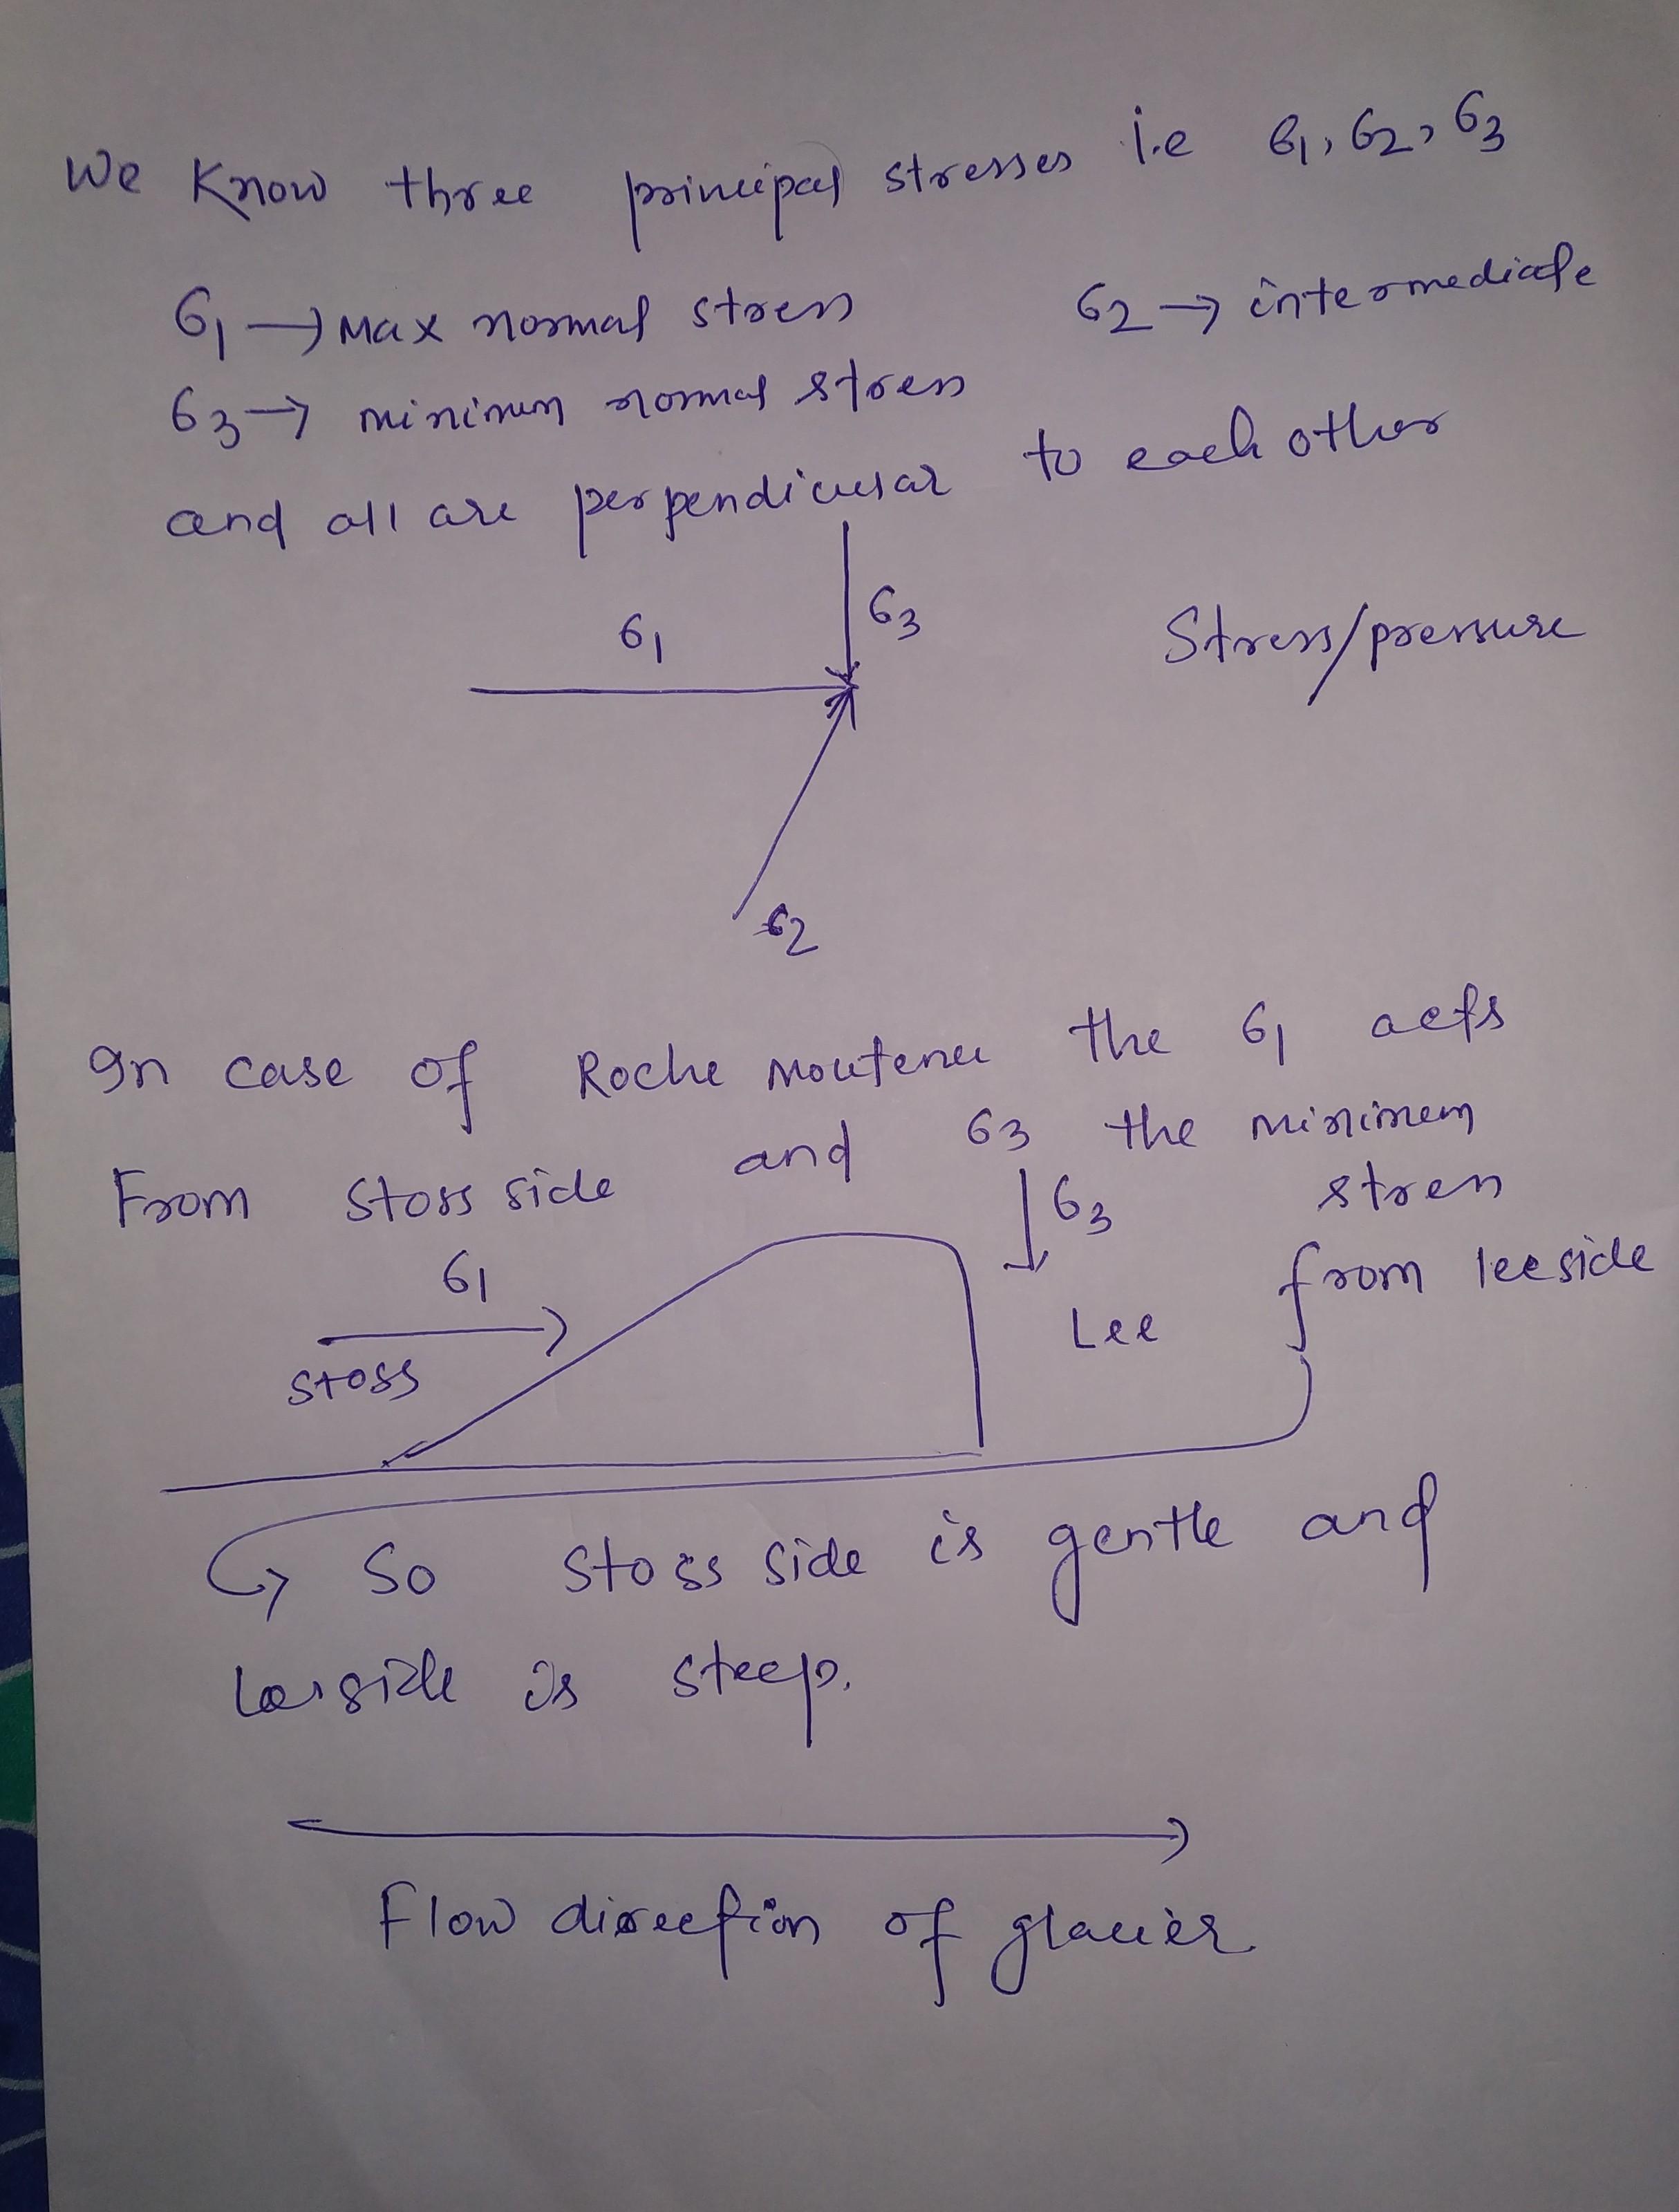 We Know three principal stresses i.e σ1, σ2, σ3
σ1 → Max normal stress σ2 → intermediate
σ3 → minimum normal stress
and all are perpendicular to each other
σ1 σ3 Stress/pressure
σ2
In case of Roche moutenee the σ1 acts
From stoss side and σ3 the minimum
stress
σ3
from leeside
σ1
Lee
stoss
↪ So stoss side is gentle and
leeside is steep.
Flow direction of glacier